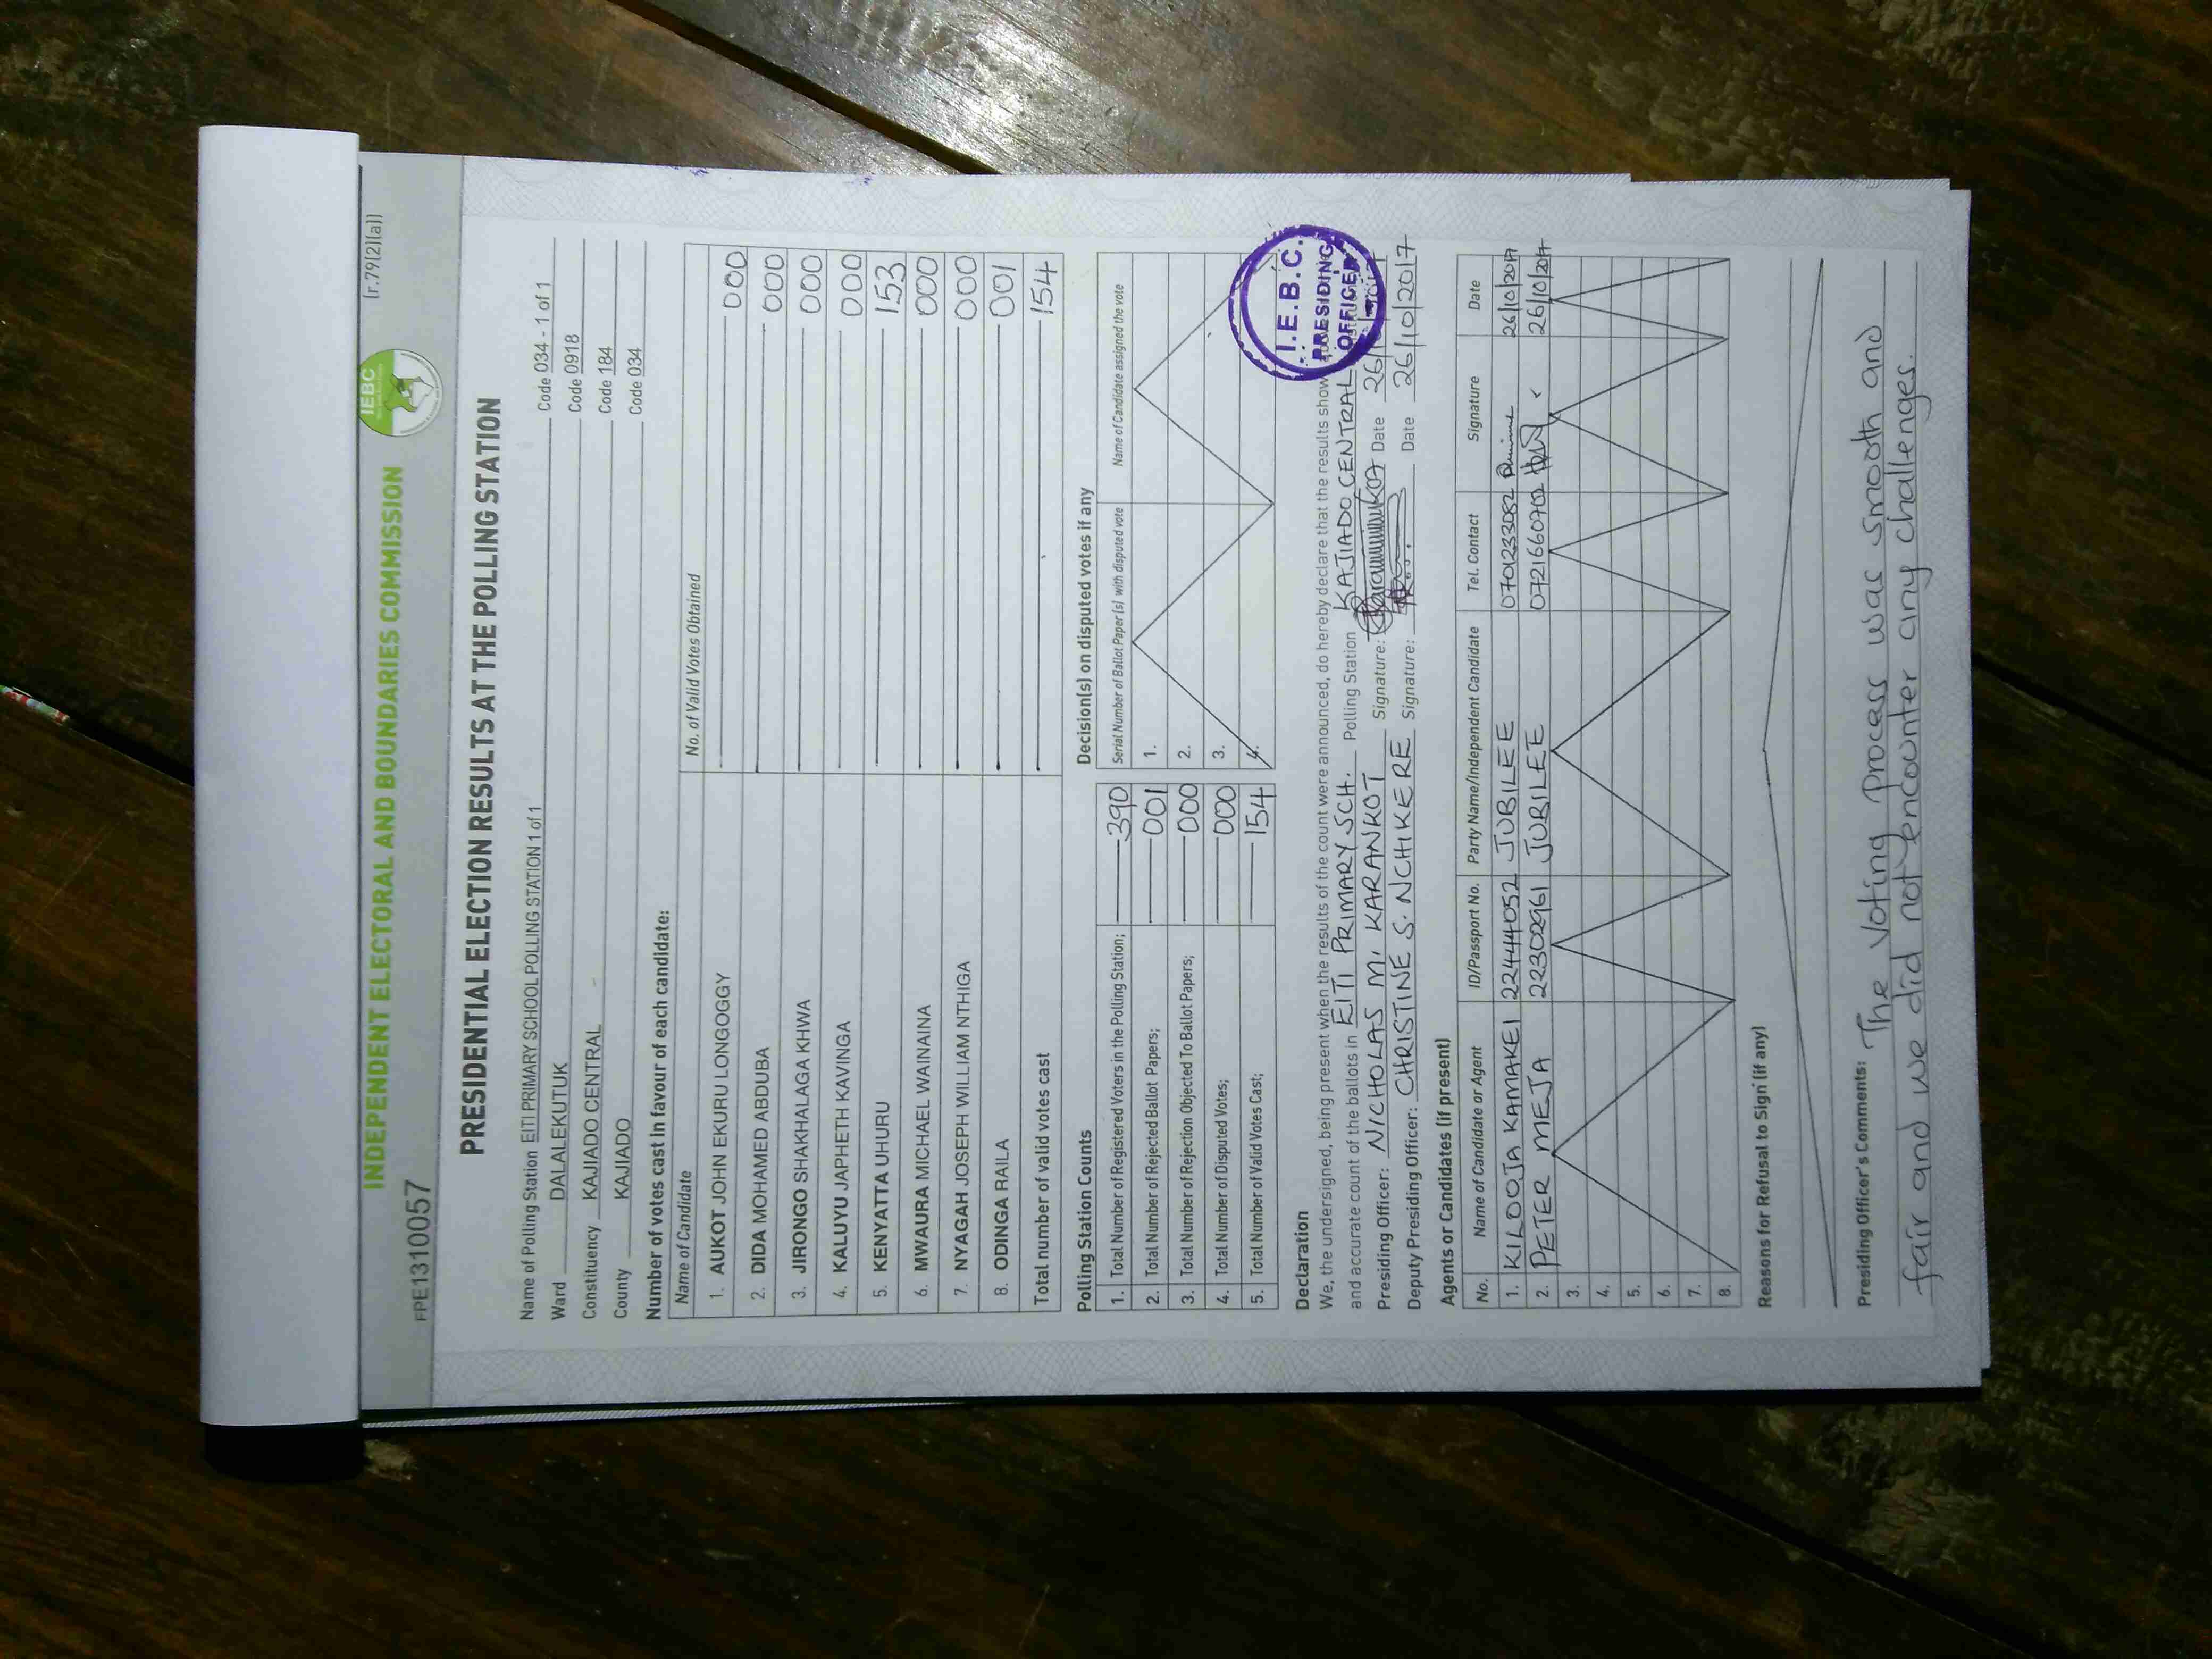 INDEPENDENT ELECTORAL AND BOUNDARIES COMMISSION
IEBC
(r.79(2)(a))
FPE1310057
PRESIDENTIAL ELECTION RESULTS AT THE POLLING STATION
Name of Polling Station EITI PRIMARY SCHOOL POLLING STATION 1 of 1 Code 034 - 1 of 1
Ward DALALEKUTUK Code 0918
Constituency KAJIADO CENTRAL Code 184
County KAJIADO Code 034
Number of votes cast in favour of each candidate:
Name of Candidate No. of Valid Votes Obtained
1. AUKOT JOHN EKURU LONGOGGY 000
2. DIDA MOHAMED ABDUBA 000
3. JIRONGO SHAKHALAGA KHWA 000
4. KALUYU JAPHETH KAVINGA 000
5. KENYATTA UHURU 153
6. MWAURA MICHAEL WAINAINA 000
7. NYAGAH JOSEPH WILLIAM NTHIGA 000
8. ODINGA RAILA 001
Total number of valid votes cast 154
Polling Station Counts
1. Total Number of Registered Voters in the Polling Station; 390
2. Total Number of Rejected Ballot Papers; 001
3. Total Number of Rejection Objected To Ballot Papers; 000
4. Total Number of Disputed Votes; 000
5. Total Number of Valid Votes Cast; 154
Decision(s) on disputed votes if any
Serial Number of Ballot Paper(s) with disputed vote Name of Candidate assigned the vote
1.
2.
3.
4.
Declaration
We, the undersigned, being present when the results of the count were announced, do hereby declare that the results show
and accurate count of the ballots in EITI PRIMARY SCH. Polling Station KAJIADO CENTRAL
Presiding Officer: NICHOLAS M. KARANKOT Signature: Date 26/
Deputy Presiding Officer: CHRISTINE S. NCHIKERE Signature: Date 26/10/2017
I.E.B.C.
PRESIDING
OFFICER
Agents or Candidates (if present)
No. Name of Candidate or Agent ID/Passport No. Party Name/Independent Candidate Tel. Contact Signature Date
1. KILOOJA KAMAKEI 22444052 JUBILEE 0701233082 26/10/2017
2. PETER MEJA 22302961 JUBILEE 0721660702 26/10/2017
3.
4.
5.
6.
7.
8.
Reasons for Refusal to Sign (if any)
Presiding Officer's Comments: The Voting process was smooth and
fair and we did not encounter any challenges.